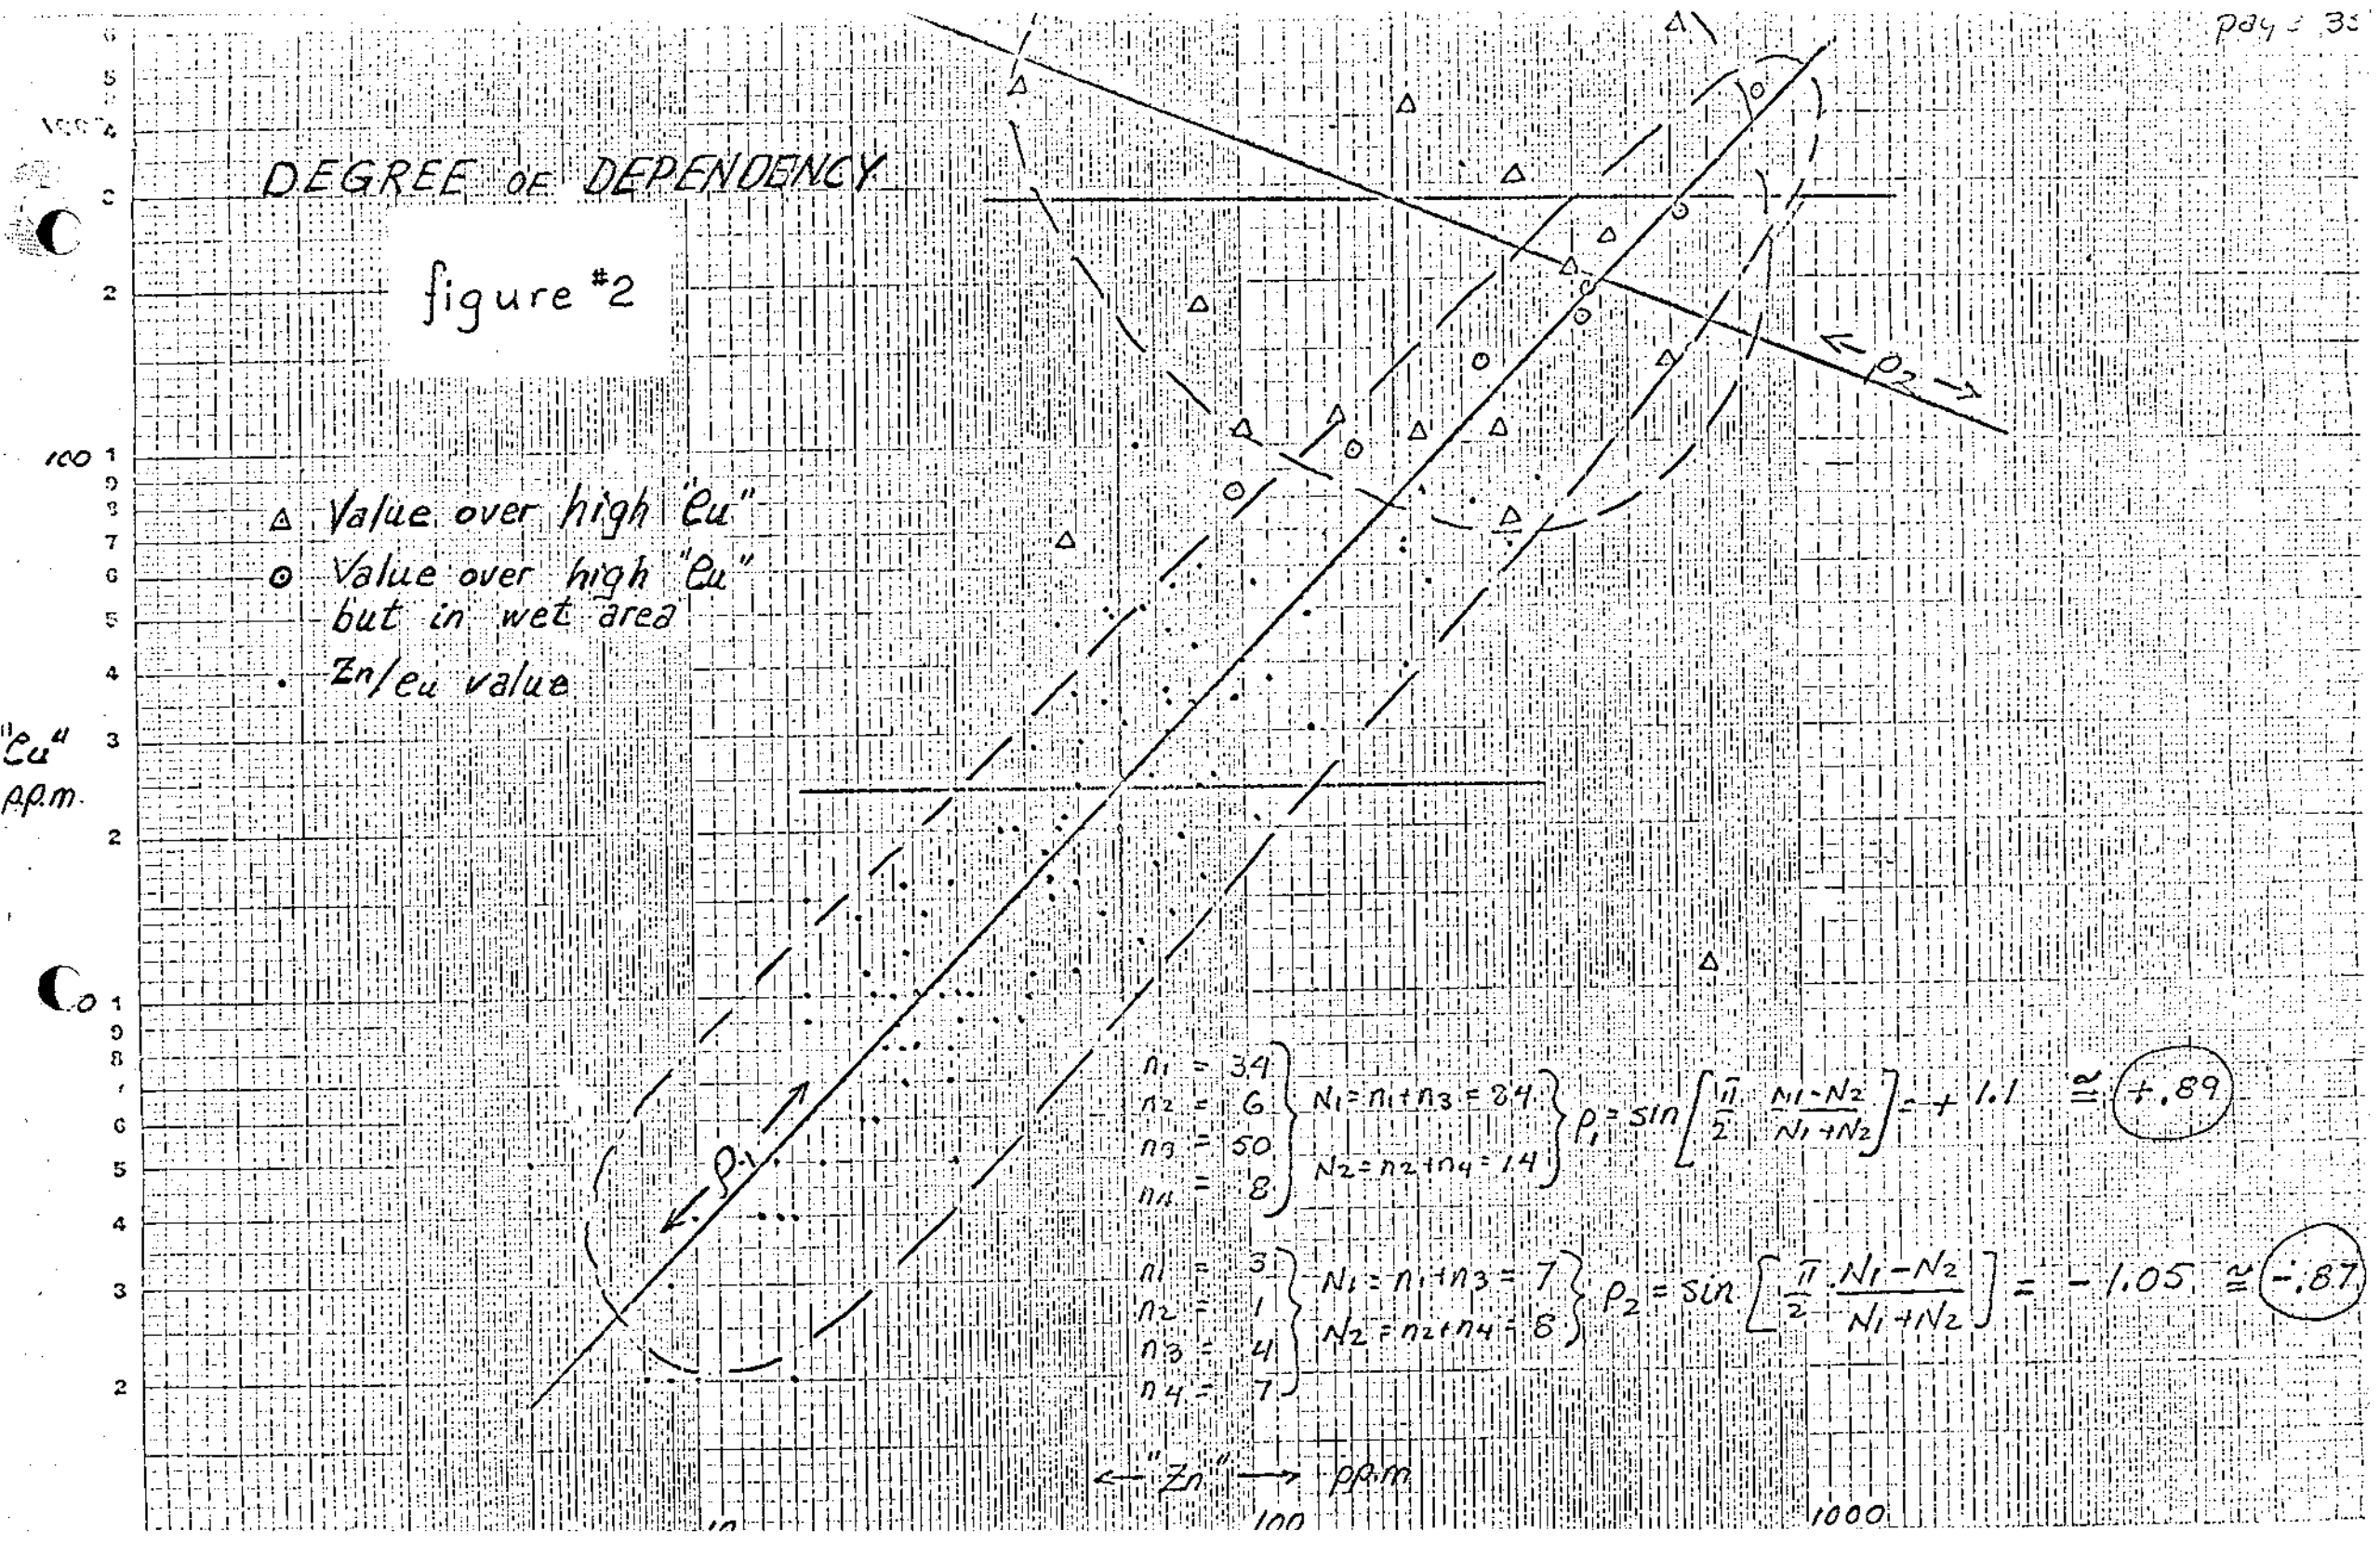 DEGREE OF DEPENDENCY
figure #2
6
5
4
2
100 1
9
8
7
6
5
4
3
2
1
9
8
7
6
5
4
3
2
△ Value over high "Cu"
⊙ Value over high "Cu"
but in wet area
. Zn/Cu value
"Cu"
p.p.m.
← ρ2 →
ρ1
n1 = 34
n2 = 6
n3 = 50
n4 = 8
N1 = n1 + n3 = 84
N2 = n2 + n4 = 14
ρ1 = sin [π/2 N1-N2/N1+N2] = + 1.1 ≅ +.89
n1 = 3
n2 = 1
n3 = 4
n4 = 7
N1 = n1 + n3 = 7
N2 = n2 + n4 = 8
ρ2 = sin [π/2 . N1-N2/N1+N2] = - 1.05 ≅ -.87
← "Zn" → ppm
10 100 1000